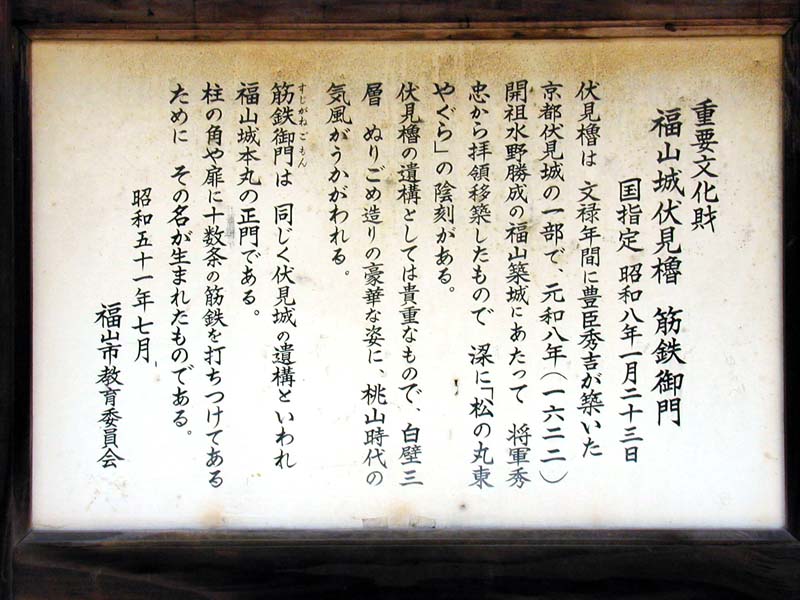 重要文化財
福山城伏見櫓　筋鉄御門
国指定　昭和八年一月二十三日
伏見櫓は　文禄年間に豊臣秀吉が築いた
京都伏見城の一部で、元和八年(一六二二)
開祖水野勝成の福山築城にあたって　将軍秀
忠から拝領移築したもので　梁に「松の丸東
やぐら」の陰刻がある。
伏見櫓の遺構としては貴重なもので、白壁三
層　ぬりごめ造りの豪華な姿に、桃山時代の
気風がうかがわれる。
筋鉄御門は　同じく伏見城の遺構といわれ
すじがねごもん
福山城本丸の正門である。
柱の角や扉に十数条の筋鉄を打ちつけてある
ために　その名が生まれたものである。
昭和五十一年七月
福山市教育委員会